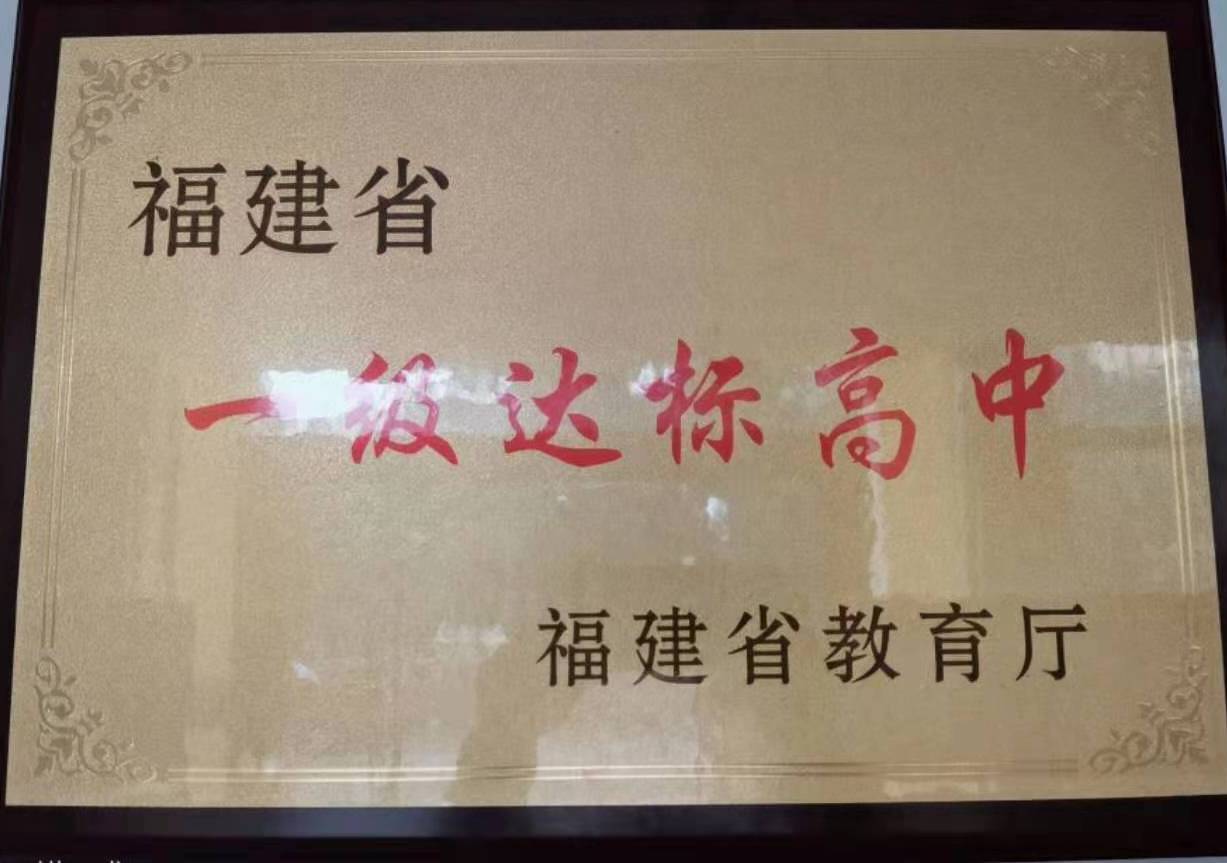 福建省
一级达标高中
福建省教育厅